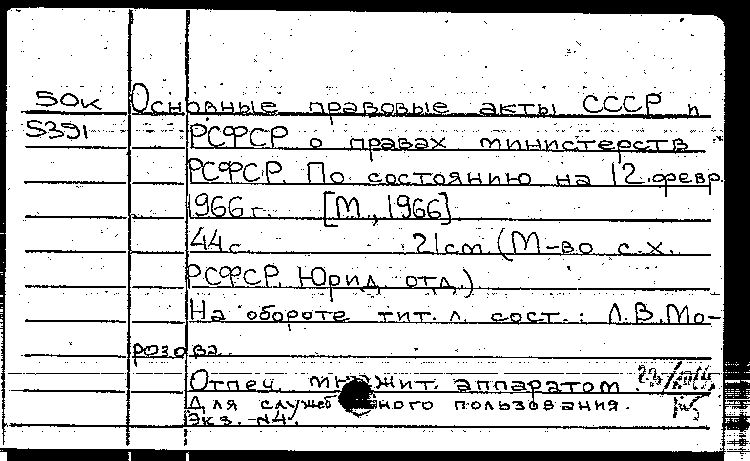 50к Основные правовые акты СССР и
5391 РСФСР о правах министерств
РСФСР. По состоянию на 12 февр.
1966 г. [М., 1966].
44 с. 21 см. (М-во с.х.
РСФСР. Юрид. отд.)
На обороте тит. л. сост.: Л.В.Мо-
розова.
Отпеч. множит. аппаратом.
Для служебного пользования.
Экз. №4.